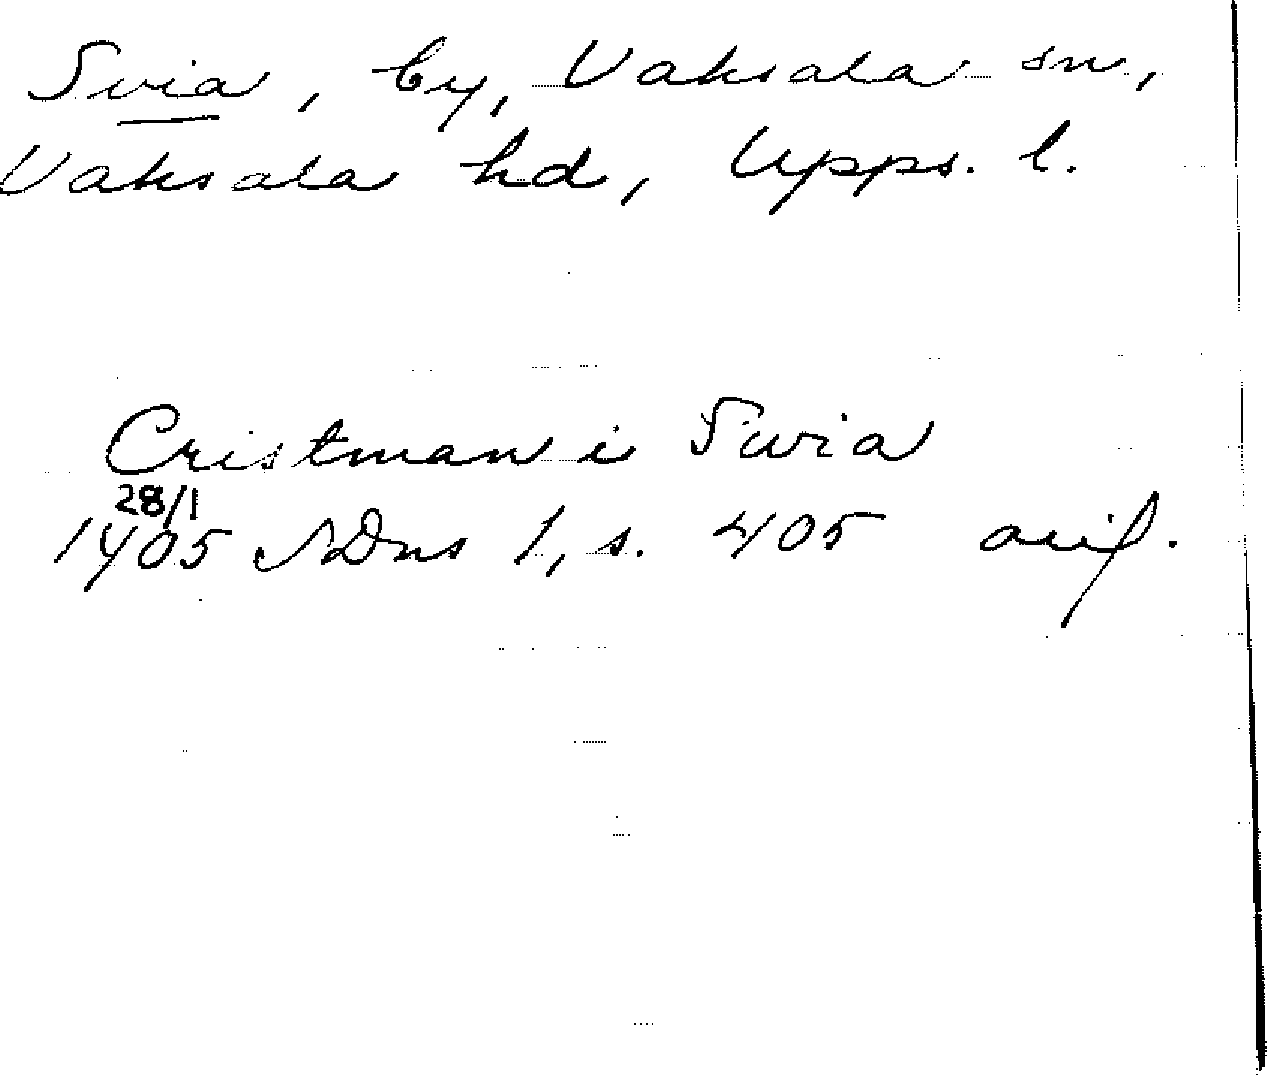 Svia, by, Vaksala sn,
Vaksala hd, Upps. l.
Cristman i Svia
28/1
1405 SDns 1, s. 405 avif.